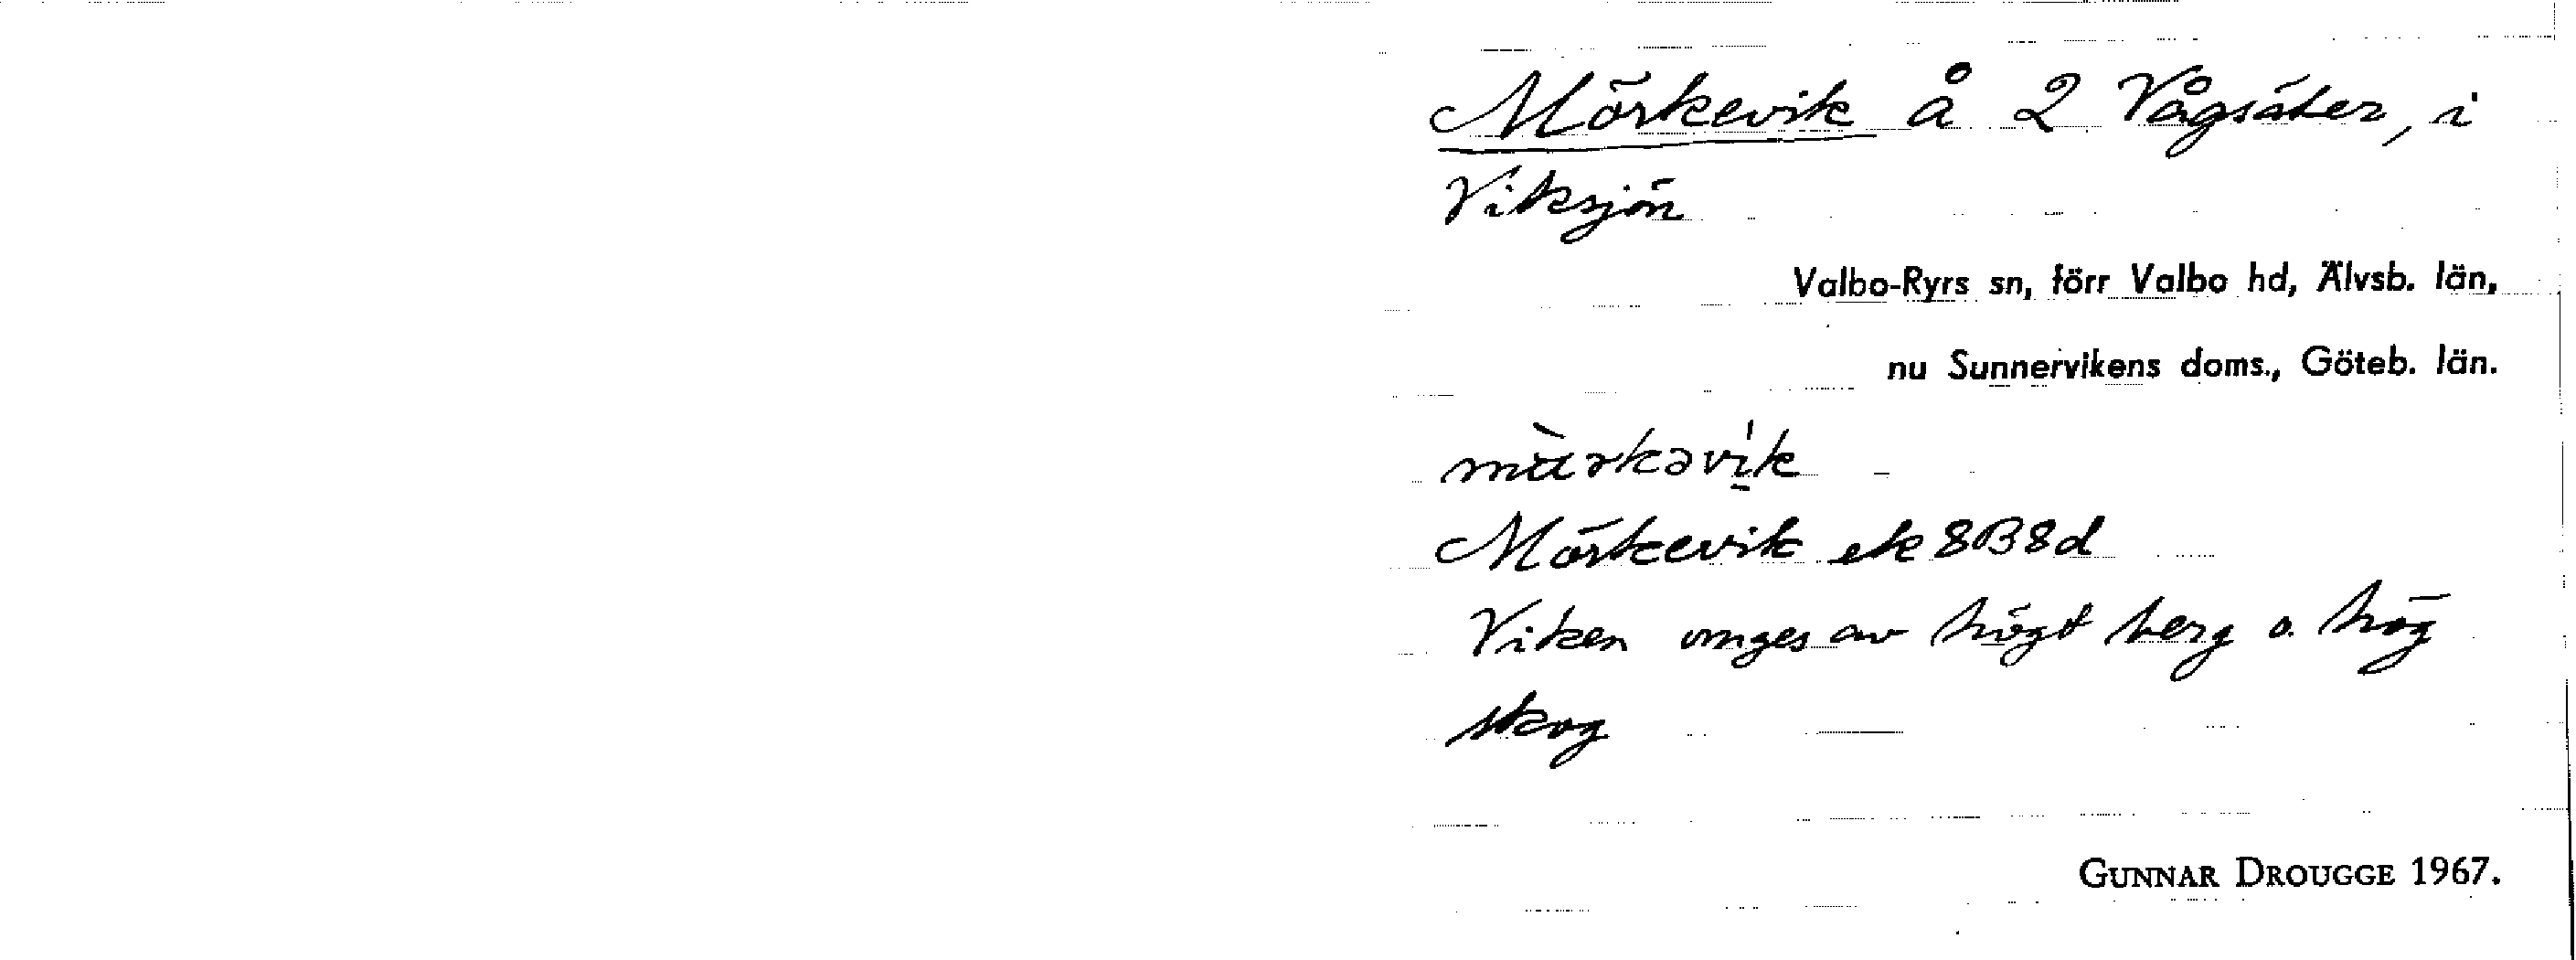 Mörkevik å 2 Vågsäter, i
Viksjön
Valbo-Ryrs sn, förr Valbo hd, Älvsb. län,
nu Sunnervikens doms., Göteb. län.
mùrkəvi̠k
Mörkevik ek 8B8d
Viken omges av högt berg o. hög
skog
GUNNAR DROUGGE 1967.